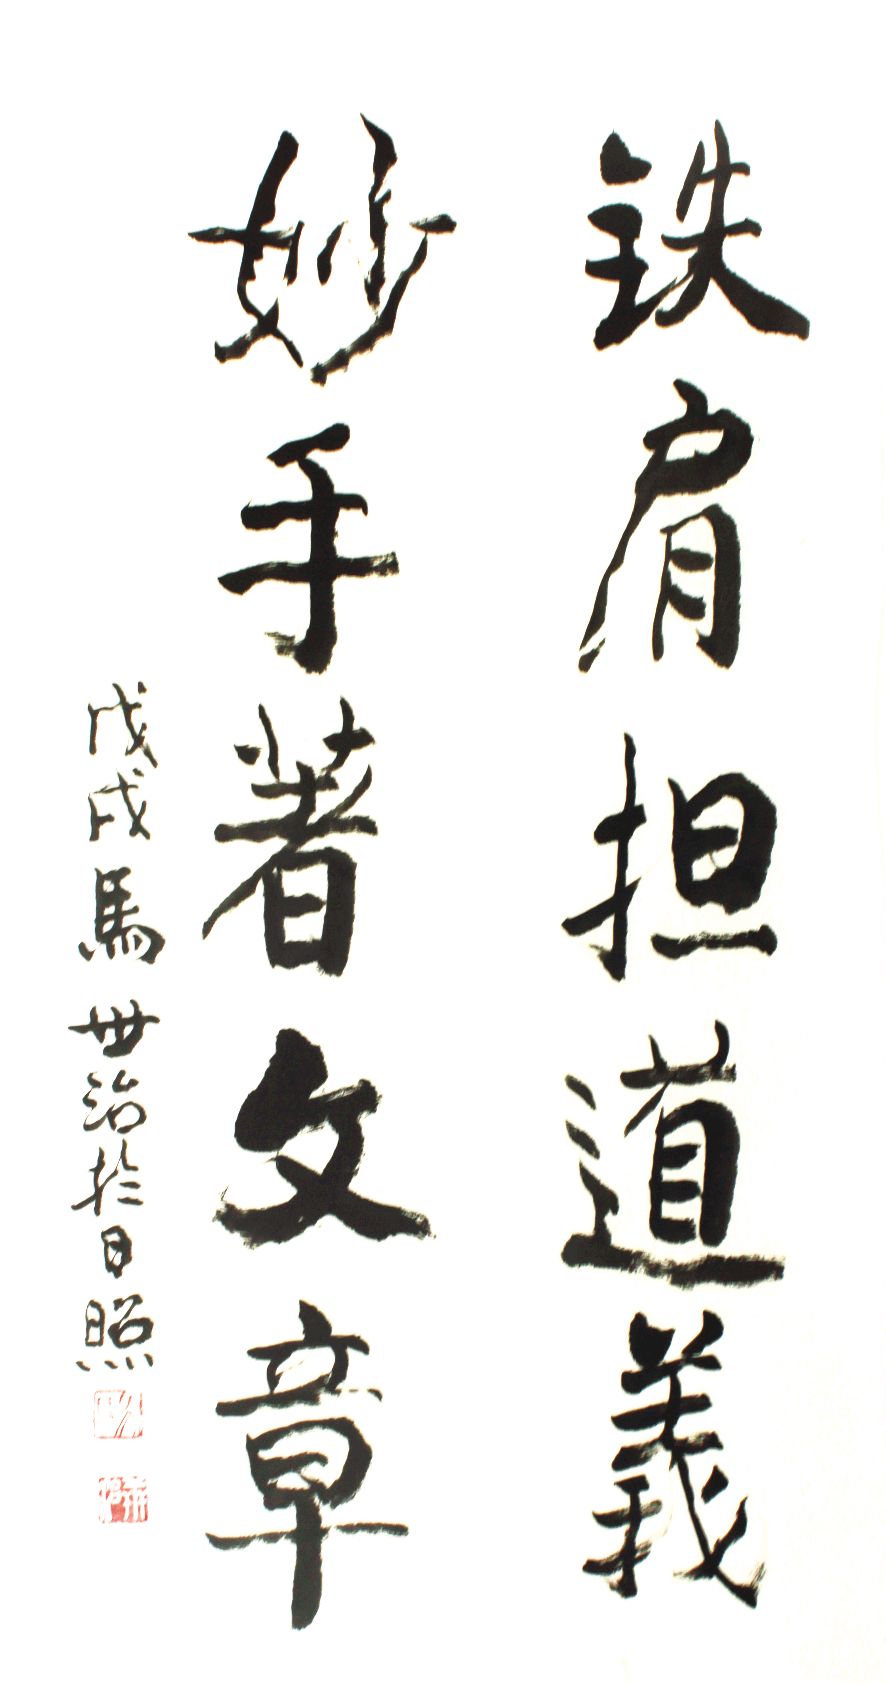 铁肩担道義
妙手著文章
戊戌馬世治於日照